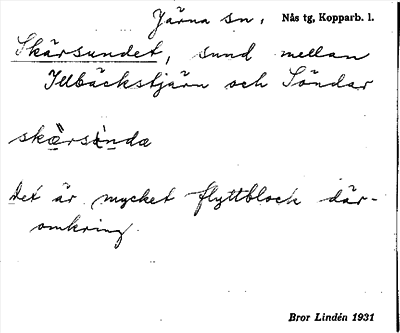 Järna sn, Nås tg, Kopparb. l.
Skärsundet, sund mellan
Illbäckstjärn och Söndar
det är mycket flyttblock där-
omkring.
Bror Lindén 1931